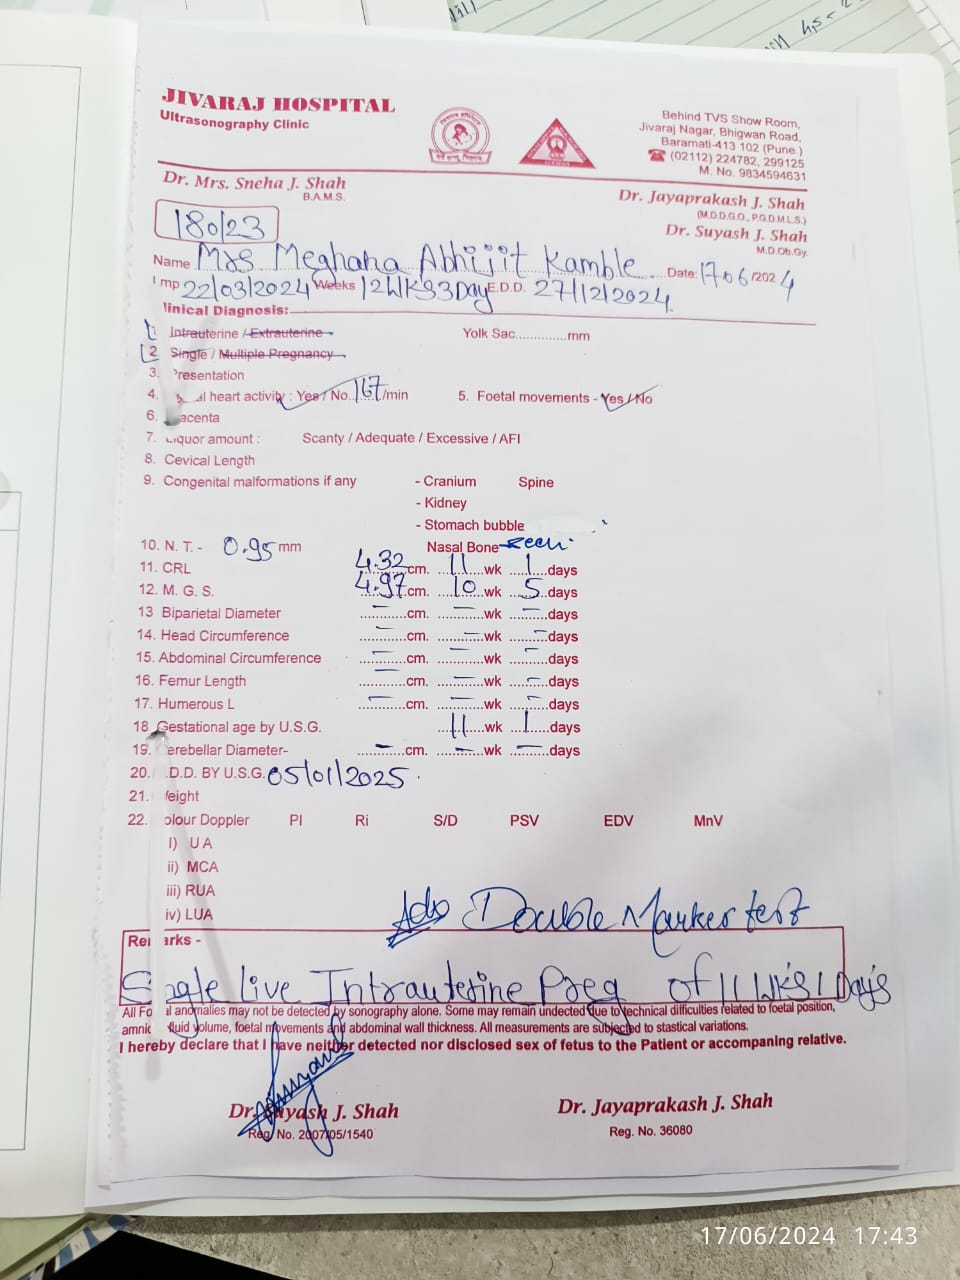 JIVARAJ HOSPITAL
Ultrasonography Clinic
Behind TVS Show Room,
Jivaraj Nagar, Bhigwan Road,
Baramati-413 102 (Pune.)
☎ (02112) 224782, 299125
M. No. 9834594631
Dr. Mrs. Sneha J. Shah
B.A.M.S.
Dr. Jayaprakash J. Shah
(M.D.D.G.O., P.G.D.M.L.S.)
Dr. Suyash J. Shah
M.D.Ob.Gy.
180/23
Name Mrs Meghana Abhijit Kamble Date: 17/06/2024
lmp 22/03/2024 Weeks 12WKS3Day E.D.D. 27/12/2024
linical Diagnosis:
1 Intrauterine / Extrauterine Yolk Sac.............mm
2 Single / Multiple Pregnancy
3. Presentation
4. al heart activity : Yes / No. 167/min 5. Foetal movements - Yes / No
6. lacenta
7. Liquor amount : Scanty / Adequate / Excessive / AFI
8. Cevical Length
9. Congenital malformations if any - Cranium Spine
- Kidney
- Stomach bubble
10. N. T. - 0.95 mm Nasal Bone seen.
11. CRL 4.32 cm. 11 wk 1 days
12. M. G. S. 4.97 cm. 10 wk 5 days
13 Biparietal Diameter – cm. – wk – days
14. Head Circumference – cm. – wk – days
15. Abdominal Circumference – cm. – wk – days
16. Femur Length – cm. – wk – days
17. Humerous L – cm. – wk – days
18 Gestational age by U.S.G. 11 wk 1 days
19. erebellar Diameter- – cm. – wk – days
20. .D.D. BY U.S.G. 05/01/2025
21. Weight
22. olour Doppler PI Ri S/D PSV EDV MnV
i) U A
ii) MCA
iii) RUA
iv) LUA
Adv Double Marker test
Remarks -
Single Live Intrauterine Preg of 11 WKS 1 Days
All Fo al anomalies may not be detected by sonography alone. Some may remain undected due to technical difficulties related to foetal position,
amnic fluid volume, foetal movements and abdominal wall thickness. All measurements are subjected to stastical variations.
I hereby declare that I have neither detected nor disclosed sex of fetus to the Patient or accompaning relative.
Dr. Suyash J. Shah
Reg. No. 2007/05/1540
Dr. Jayaprakash J. Shah
Reg. No. 36080
17/06/2024 17:43